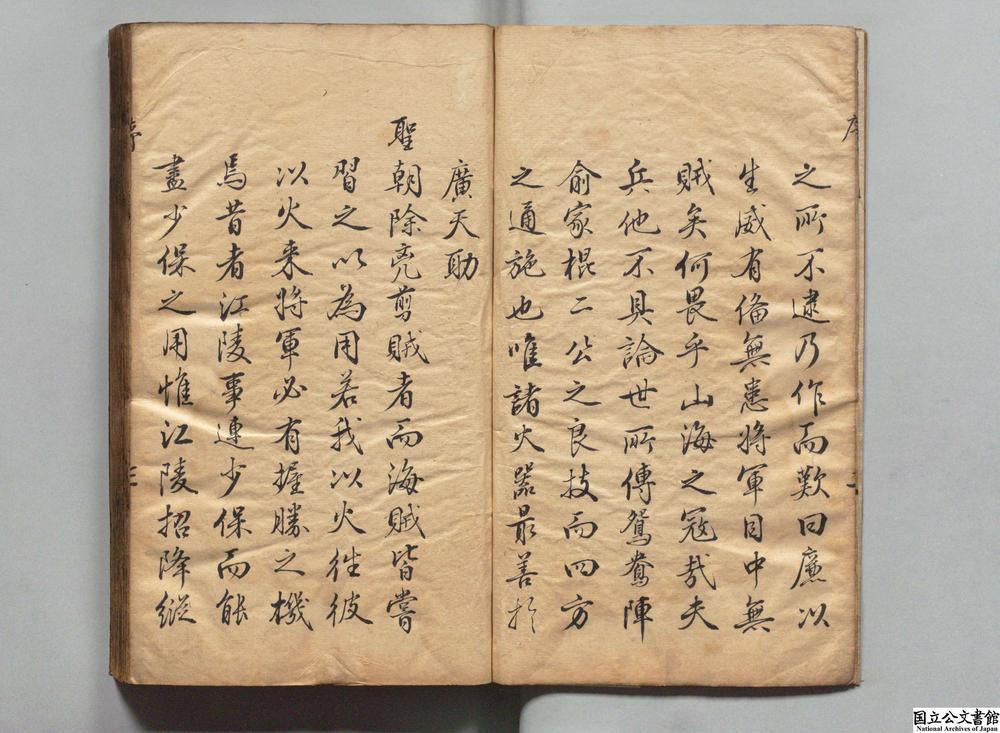 之所不逮乃作而歎曰廉以
生威有俻無患將軍目中無
賊矣何畏乎山海之冦㢤夫
兵他不具論世所傳鴛鴦陣
俞家棍二公之良技而四方
之通施也唯諸火器最善於
廣天助
聖朝除兇剪賊者而海賊皆嘗
習之以為用若我以火徃彼
以火来將軍必有握勝之機
焉昔者江陵事連少保而能
盡少保之用惟江陵招降縱
序
国立公文書館
National Archives of Japan